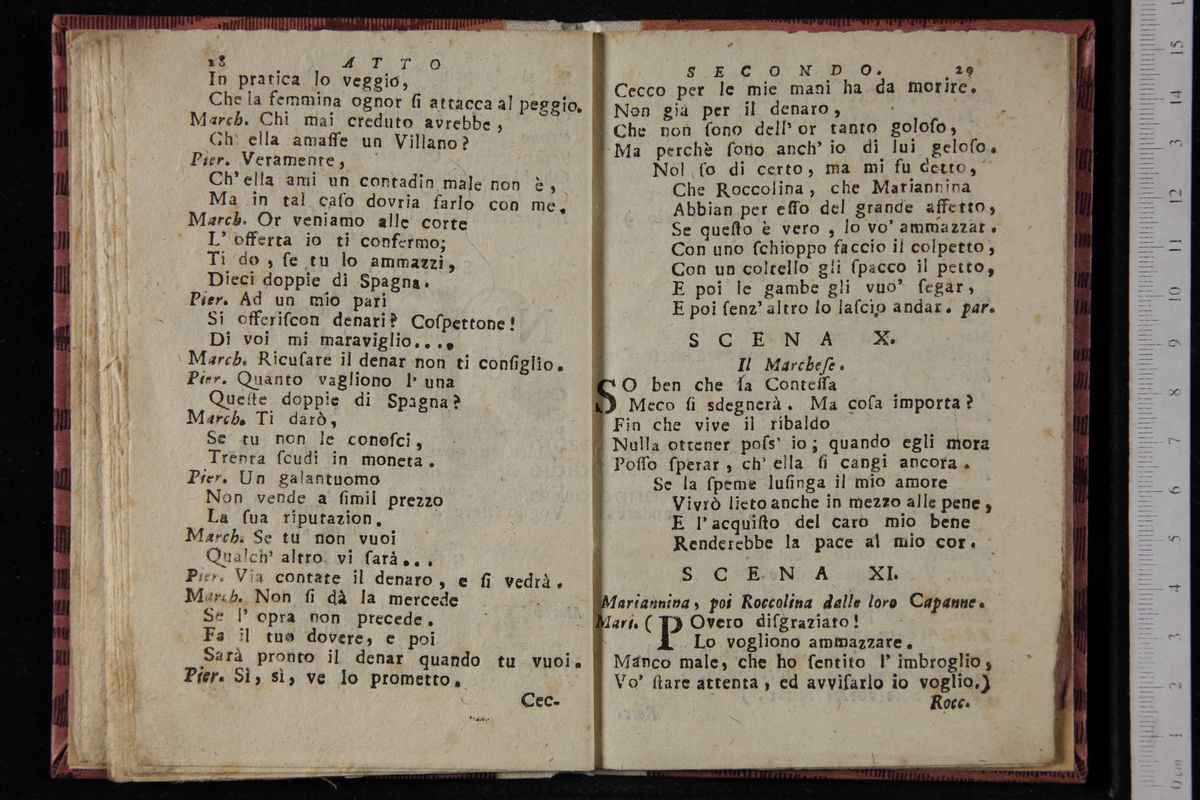 28 ATTO
In pratica lo veggio,
Che la femmina ognor ſi attacca al peggio.
March. Chi mai creduto avrebbe,
Ch' ella amaſſe un Villano?
Pier. Veramente,
Ch' ella ami un contadin male non è,
Ma in tal caſo dovria farlo con me.
March. Or veniamo alle corte
L' offerta io ti confermo;
Ti do, ſe tu lo ammazzi,
Dieci doppie di Spagna.
Pier. Ad un mio pari
Si offeriſcon denari? Coſpettone!
Di voi mi maraviglio....
March. Ricuſare il denar non ti conſiglio.
Pier. Quanto vagliono l' una
Queſte doppie di Spagna?
March. Ti darò,
Se tu non le conoſci,
Trenta ſcudi in moneta.
Pier. Un galantuomo
Non vende a ſimil prezzo
La ſua riputazion.
March. Se tu non vuoi
Qualch' altro vi ſarà...
Pier. Via contate il denaro, e ſi vedrà.
March. Non ſi dà la mercede
Se l' opra non precede.
Fa il tuo dovere, e poi
Sarà pronto il denar quando tu vuoi.
Pier. Sì, sì, ve lo prometto.
Cec-
SECONDO. 29
Cecco per le mie mani ha da morire.
Non già per il denaro,
Che non ſono dell' or tanto goloſo,
Ma perchè ſono anch' io di lui geloſo.
Nol ſo di certo, ma mi fu detto,
Che Roccolina, che Mariannina
Abbian per eſſo del grande affetto,
Se queſto è vero, lo vo' ammazzar.
Con uno ſchioppo faccio il colpetto,
Con un coltello gli ſpacco il petto,
E poi le gambe gli vuo' ſegar,
E poi ſenz' altro lo laſcio andar. par.
SCENA X.
Il Marcheſe.
SO ben che la Conteſſa
Meco ſi sdegnerà. Ma coſa importa?
Fin che vive il ribaldo
Nulla ottener poſs' io; quando egli mora
Poſſo ſperar, ch' ella ſi cangi ancora.
Se la ſpeme luſinga il mio amore
Vivrò lieto anche in mezzo alle pene,
E l' acquiſto del caro mio bene
Renderebbe la pace al mio cor.
SCENA XI.
Mariannina, poi Roccolina dalle loro Capanne.
Mari. (POvero diſgraziato!
Lo vogliono ammazzare.
Manco male, che ho ſentito l' imbroglio,
Vo' ſtare attenta, ed avviſarlo io voglio.)
Rocc.